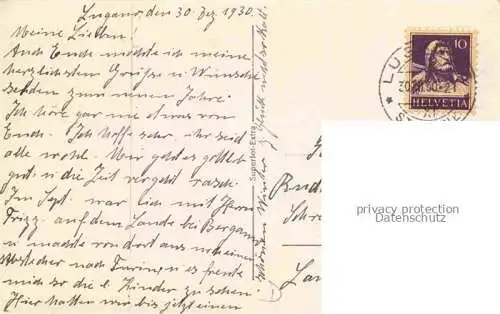 Lugano, den 30 Dez 1930.
Meine Lieben
Auch Euch möchte ich meine
herzlichsten Grüsse u Wünsche
senden zum neuen Jahre.
Ich höre gar nie etwas von
Euch. Ich hoffe sehr ihr seid
alle wohl. Mir geht es gottlob
gut u die Zeit vergeht rasch.
Im Sept. war ich mit Herrn
auf dem Lande bei Bergamo
u machte von dort aus
nach Turin u es freute
mich so die l. Kinder zu sehen.
Hier hatten wir bis jetzt einen
schönen Winter
Superbol-Extra
10
HELVETIA
LU
30.XII.30.-21
privacy protection
Datenschutz